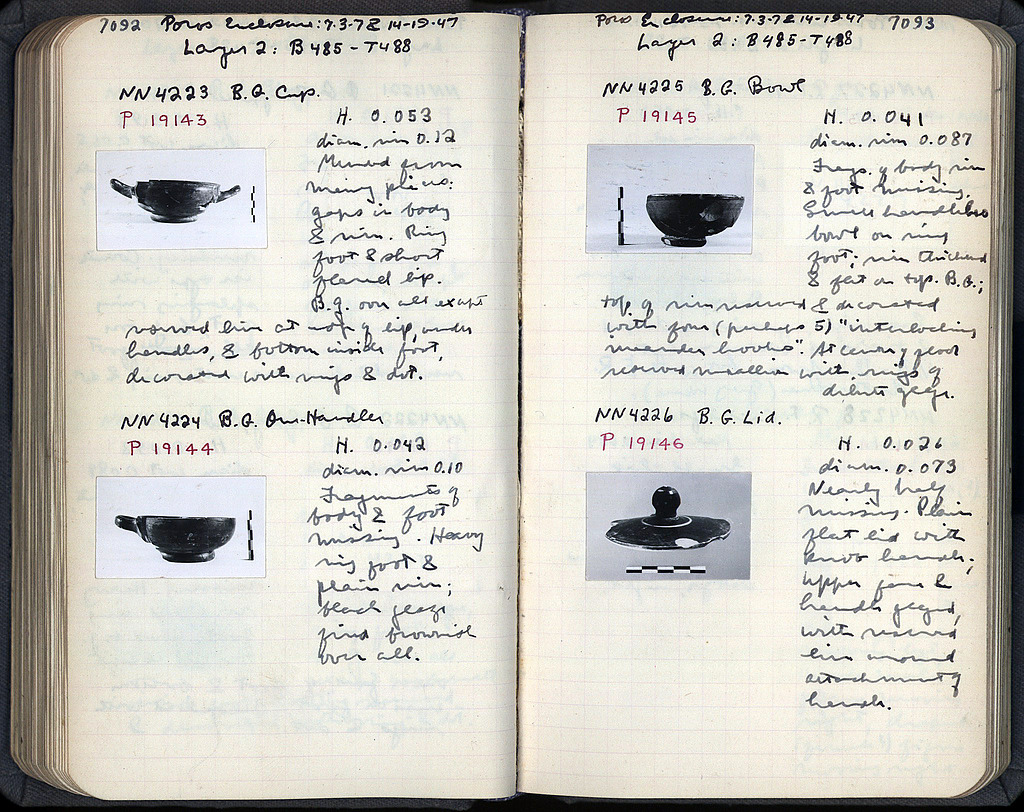 7092 Poros Enclosure: 7-3-72 14-19-47
Layer 2: B 485 - T 488
NN 4223 B.G. Cup.
P 19143
H. 0.053
diam. rim 0.12
Mended from
many pieces:
gaps in body
& rim. Ring
foot & short
flared lip.
B.g. over all except
reserved line at top of lip, under
handles, & bottom inside foot,
decorated with rings & dot.
NN 4224 B.G. One-Handler
P 19144
H. 0.042
diam. rim 0.10
Fragments of
body & foot
missing. Heavy
ring foot &
plain rim;
black glaze
fired brownish
over all.
Poros Enclosure: 7-3-72 14-19-47 7093
Layer 2: B 485 - T 488
NN 4225 B.G. Bowl
P 19145
H. 0.041
diam. rim 0.087
Frags. of body rim
& foot missing.
Small handleless
bowl on ring
foot; rim thickened
& flat on top. B.G.;
top of rim reserved & decorated
with four (perhaps 5) "interlocking
meander hooks". At center of floor
reserved medallion with rings of
dilute glaze.
NN 4226 B.G. Lid.
P 19146
H. 0.026
diam. 0.073
Nearly half
missing. Plain
flat lid with
knob handle;
upper face &
handle glazed,
with reserved
line around
attachment of
handle.